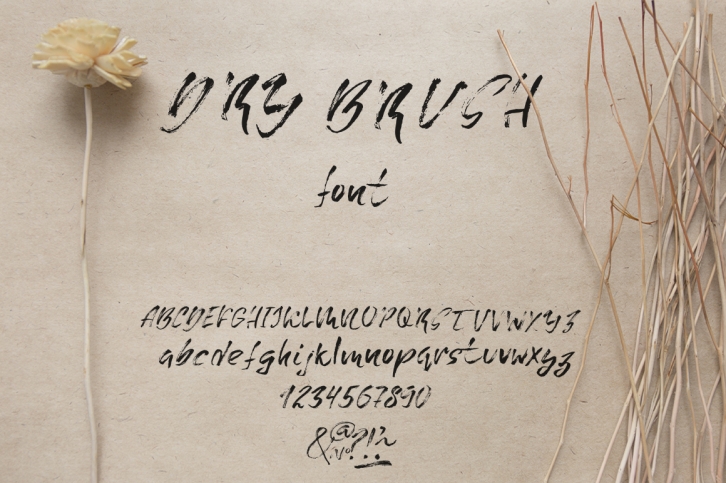 DRY BRUSH
font
ABCDEFGHIJKLMNOPQRSTUVWXYZ
abcdefghijklmnopqrstuvwxyz
1234567890
&@№?!.,~_